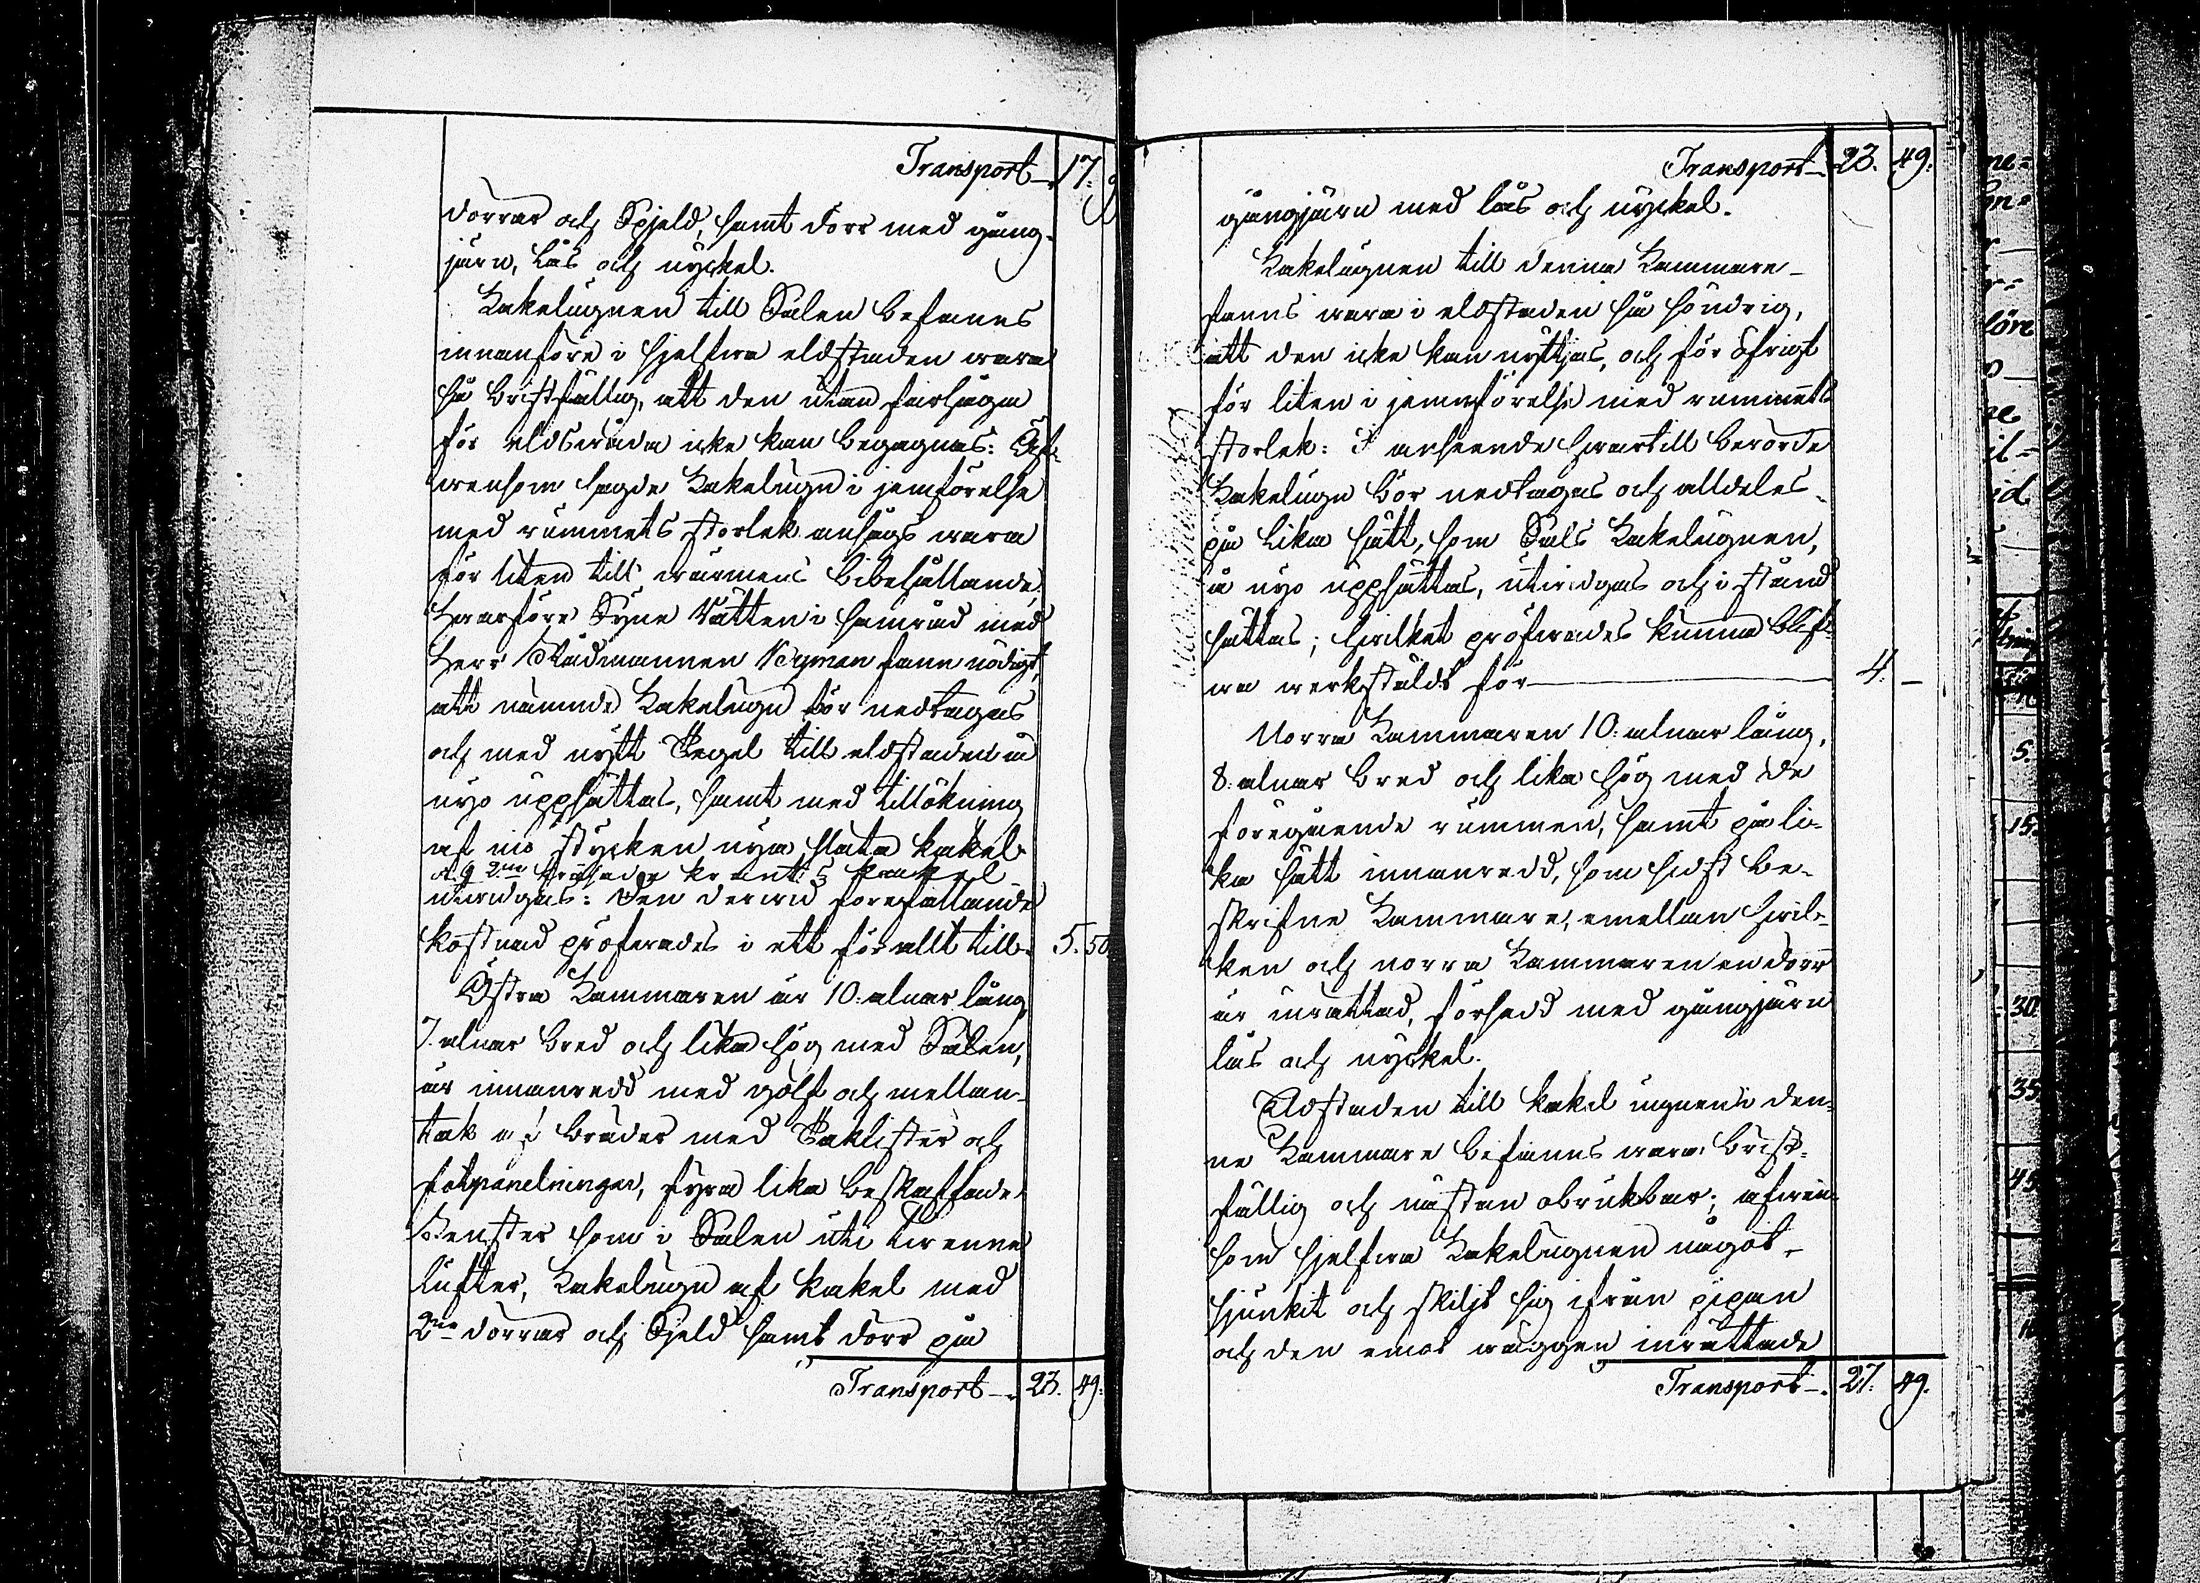 Transport 17.
dörrar och Spjeld, samt dörr med gång-
järn, lås och nyckel.
Kakelugnen till Salen befanns
innanföre i sjelfwa eldstaden wara
så bristfällig, att den utan farhåga
för eldswåda icke kan begagnas: Äf-
wensom sagde Kakelugn i jemförelse
med rummets storlek ansågs wara
för liten till wärmens bibehållande;
Hwarföre Syne Rätten i samråd med
Herr Rådmannen Nyman fann nödigt,
att nämnde Kakelugn bör nedtagas
och med nytt Tegel till eldstaden å
nyo uppsättas, samt med tillökning
af nio stycken nya släta kakel
o. 9 2ne krants kakel
utwidgas: Den derwid förefallande
kostnad pröfwades i ett för allt till 5. 50
Östra Kammaren är 10: alnar lång,
7. alnar bred och lika hög med Salen,
är innanredd med golf och mellan-
tak af bräder med Taklister och
fotpanelningar, fyra lika beskaffade
Fenster som i Salen uti twenne
lufter, Kakelugn af kakel med
2ne dörrar och Spjeld samt dörr på
Transport 23. 49.
Transport 23. 49.
gångjärn med lås och nyckel.
Kakelugnen till denna Kammare
fanns wara i eldstaden så söndrig,
att den icke kan nyttjas, och för öfrigt
för liten i jemnförelse med rummets
storlek: I anseende hwartill berörde
Kakelugn bör nedtagas och alldeles
på lika sätt, som Sals Kakelugnen,
å nyo uppsättas, utwidgas och i stånd
sättas; hwilket pröfwades kunna blif-
wa werkstäldt för 4. –
Norra Kammaren 10: alnar lång,
8: alnar bred och lika hög med de
föregående rummen, samt på li-
ka sätt innanredd, som sidst be-
skrifne Kammare, emellan hwil-
ken och norra Kammaren en dörr
är inrättad, försedd med gångjärn
lås och nyckel.
Eldstaden till kakelugnen i den-
ne Kammare befanns wara brist-
fällig och nästan obrukbar; äfwen-
som sjelfwa Kakelugnen något
sjunkit och skiljt sig ifrån pipan
och den emot wäggen inrättade
Transport 27. 49.